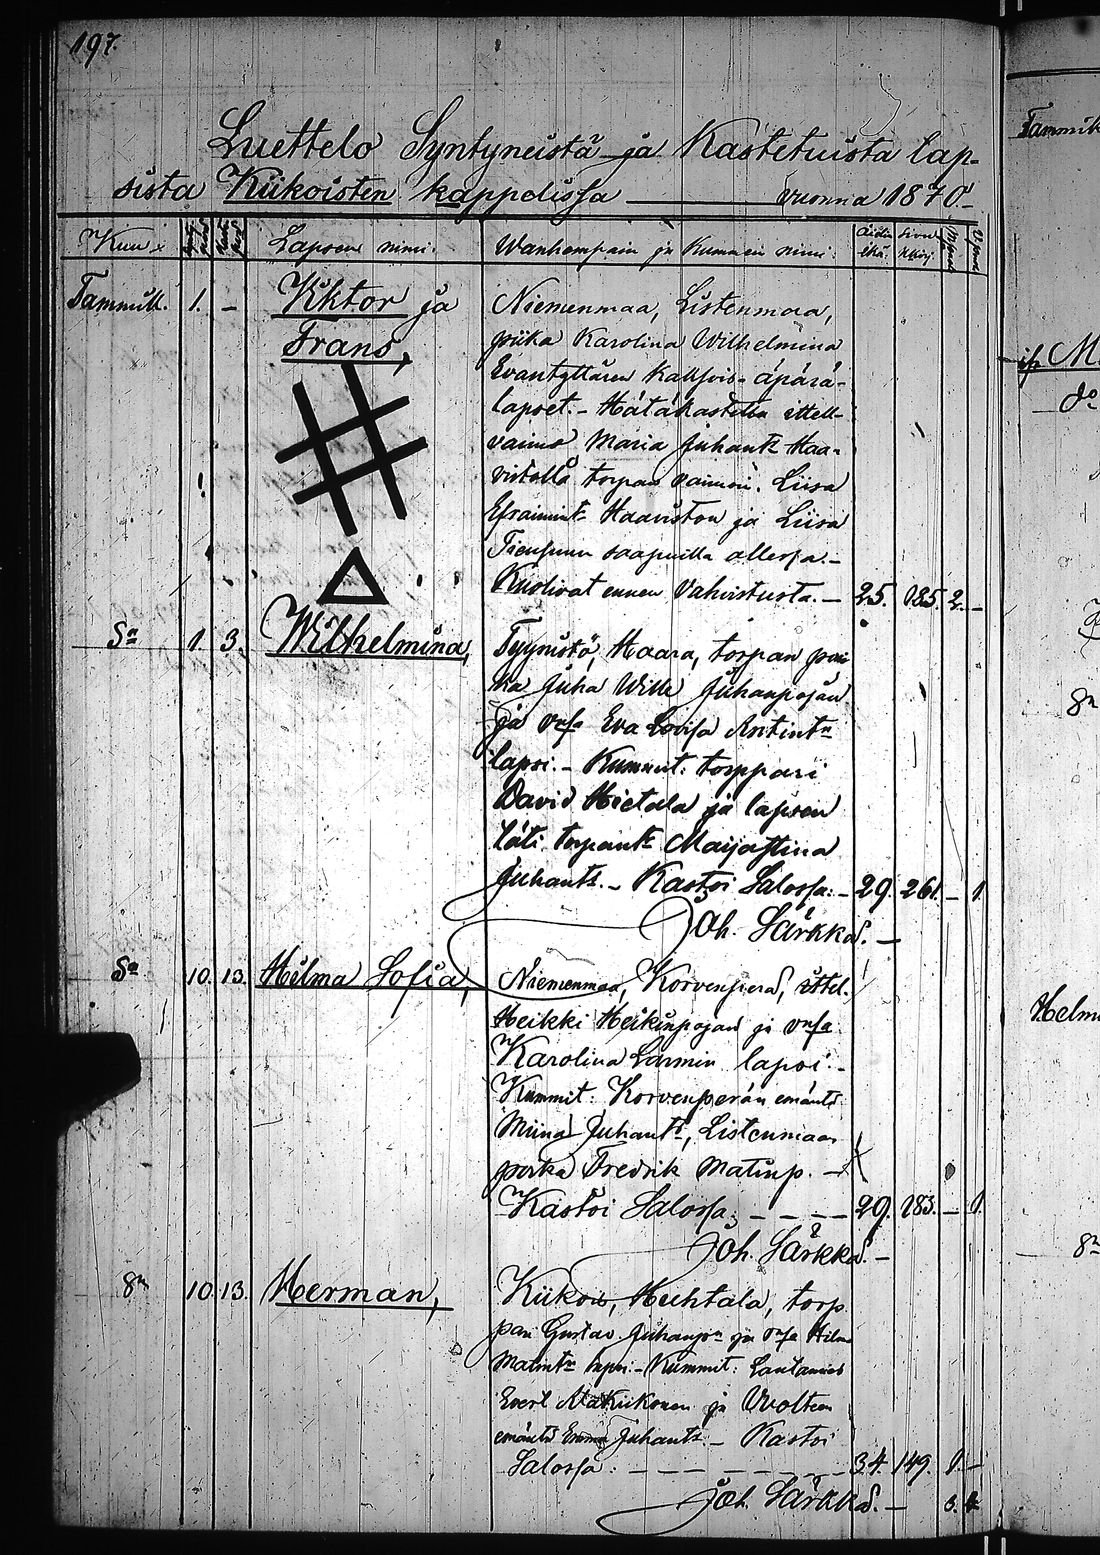 197.
Luettelo Syntyneistä ja Kastetuista lap-
sista Kiikoisten kappelissa vuonna 1870
Kuu Lapsen nimi. Wanhempain ja Kummein nimi. Äidin ikä. Sivu kirj.
Tammik. 1. - Viktor ja Niemenmaa, Listenmaa,
Frans, piika Karolina Wilhelmina
Evantyttären kaksois-äpärä-
lapset. - Hätäkastettu ittell-
vaimo Maria Juhant Haa-
vistolla torpan vaimon. Liisa
Efraimint Haaviston ja Liisa
saapuilla ollessa. -
Kuolivat ennen Vahvistusta. - 25. 185. 2. -
Sn 1. 3. Wilhelmina, Tyynistö, Haara, torpan
Juha Wille Juhanpojan
ja vmsa Eva Lovisa Antintn
lapsi. - Kummit: torppari
David Hietala ja lapsen
täti torpant Maijastina
Juhants. - Kastoi Salossa: - 29. 261. - 1.
Joh. Särkkä. -
Sn 10. 13. Hilma Sofia, Niemenmaa, Korvenperä, ittel.
Heikki Heikinpojan ja vmsa
Karolina Larmin lapsi. -
Kummit: Korvenperän emänts
Miina Juhants, Listenmaan
poika Fredrik Matinp. -
Kastoi Salossa: - - - - 29. 183. - 1.
Joh. Särkkä. -
Sn 10. 13. Herman, Kiikois, Huhtala, torp.
pari Gustav Juhanpn ja vmsa
Matintn lapsi. - Kummit: Lautamies
Evert Alakiikonen ja Vuolteen
emäntä Juhants. - Kastoi
Salossa: - - - - - - - 34. 149. 1. -
Joh. Särkkä. - 3.
Tammik
Sn
Helm
Sn